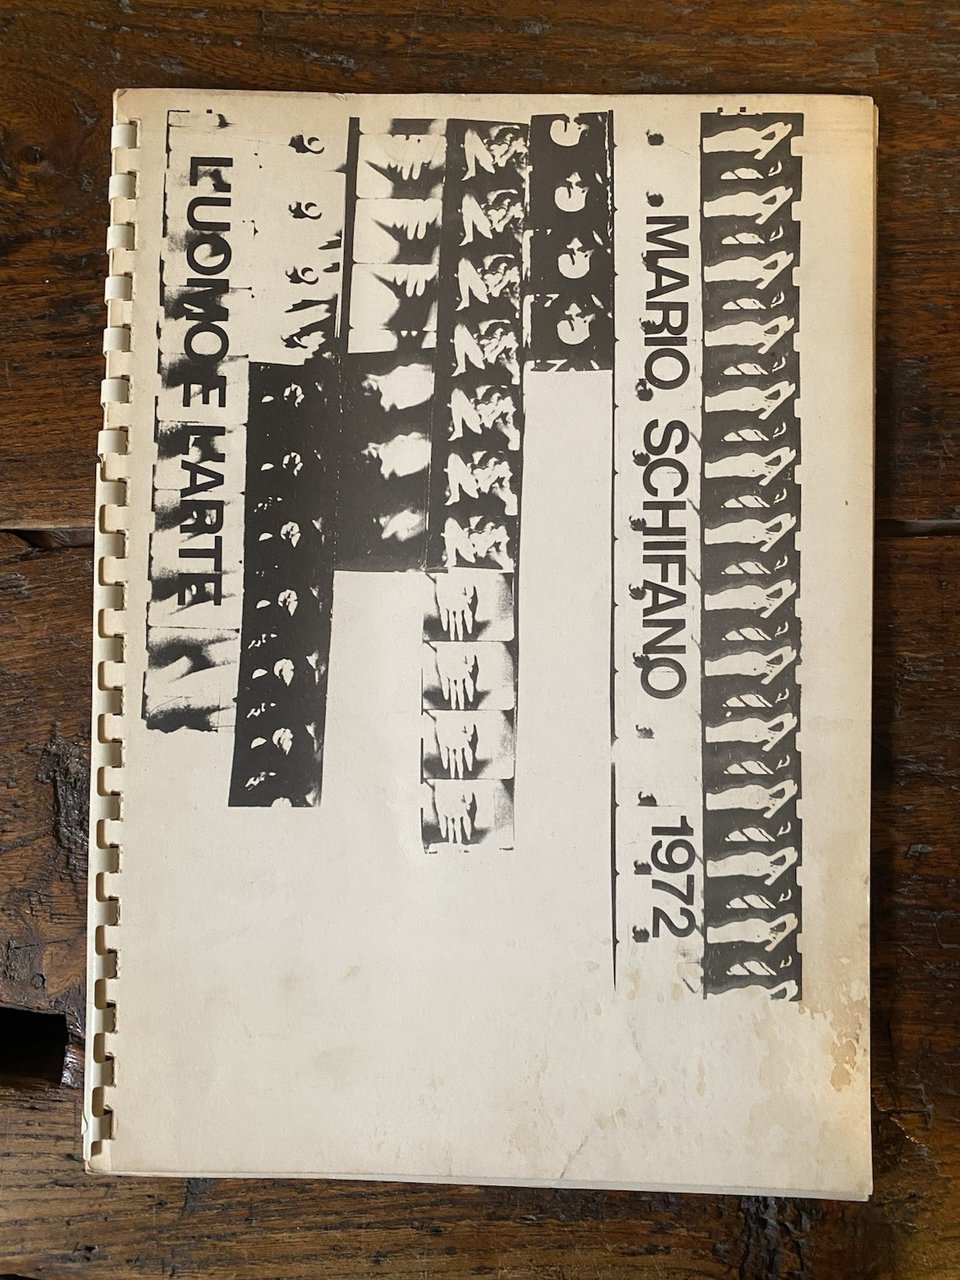 MARIO SCHIFANO 1972
L'UOMO E L'ARTE